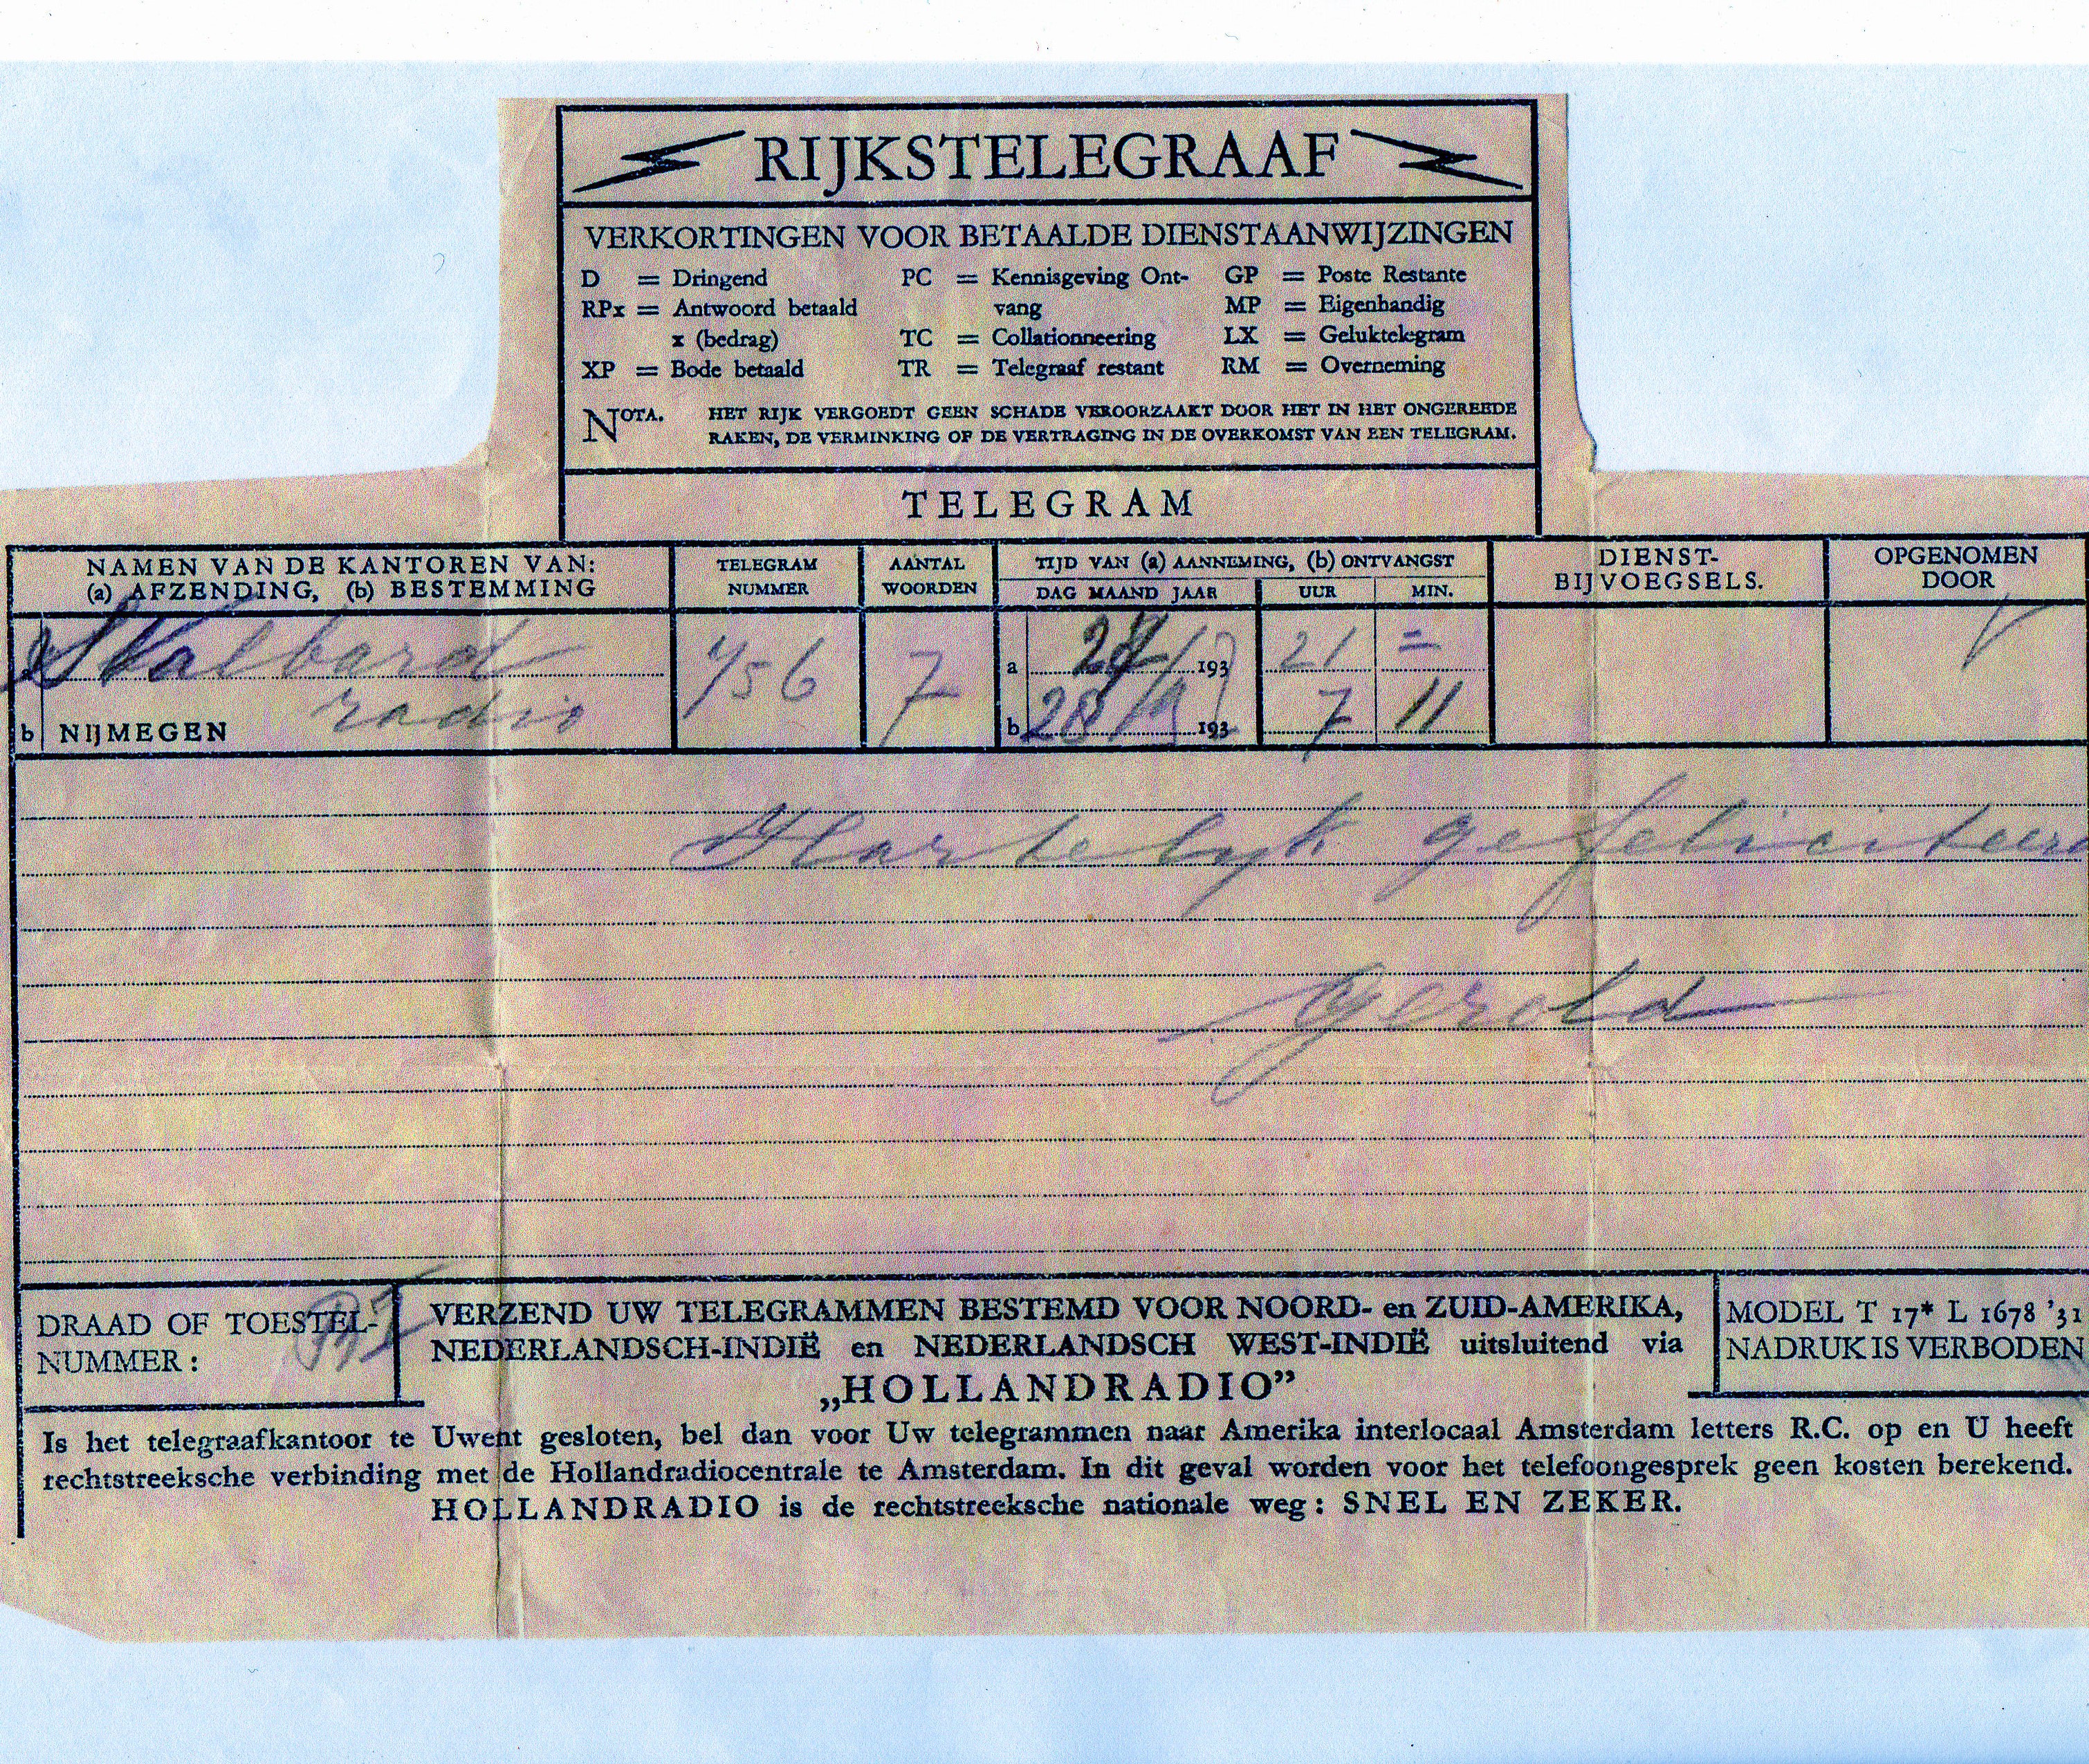 RIJKSTELEGRAAF
VERKORTINGEN VOOR BETAALDE DIENSTAANWIJZINGEN
D = Dringend PC = Kennisgeving Ont- GP = Poste Restante
RPx = Antwoord betaald vang MP = Eigenhandig
x (bedrag) TC = Collationneering LX = Geluktelegram
XP = Bode betaald TR = Telegraaf restant RM = Overneming
NOTA. HET RIJK VERGOEDT GEEN SCHADE VEROORZAAKT DOOR HET IN HET ONGEREEDE
RAKEN, DE VERMINKING OF DE VERTRAGING IN DE OVERKOMST VAN EEN TELEGRAM.
TELEGRAM
NAMEN VAN DE KANTOREN VAN: TELEGRAM AANTAL TIJD VAN (a) AANNEMING, (b) ONTVANGST DIENST- OPGENOMEN
(a) AFZENDING, (b) BESTEMMING NUMMER WOORDEN DAG MAAND JAAR UUR MIN. BIJVOEGSELS. DOOR
Svalbard 456 7 a 193 21 =
radio
b NIJMEGEN b 28 193 7 11
Hartelyk gefeliciteerd
Gerold
DRAAD OF TOESTEL-
NUMMER:
VERZEND UW TELEGRAMMEN BESTEMD VOOR NOORD- en ZUID-AMERIKA,
NEDERLANDSCH-INDIË en NEDERLANDSCH WEST-INDIË uitsluitend via
„HOLLANDRADIO”
MODEL T 17* L 1678 '31
NADRUK IS VERBODEN
Is het telegraafkantoor te Uwent gesloten, bel dan voor Uw telegrammen naar Amerika interlocaal Amsterdam letters R.C. op en U heeft
rechtstreeksche verbinding met de Hollandradiocentrale te Amsterdam. In dit geval worden voor het telefoongesprek geen kosten berekend.
HOLLANDRADIO is de rechtstreeksche nationale weg: SNEL EN ZEKER.